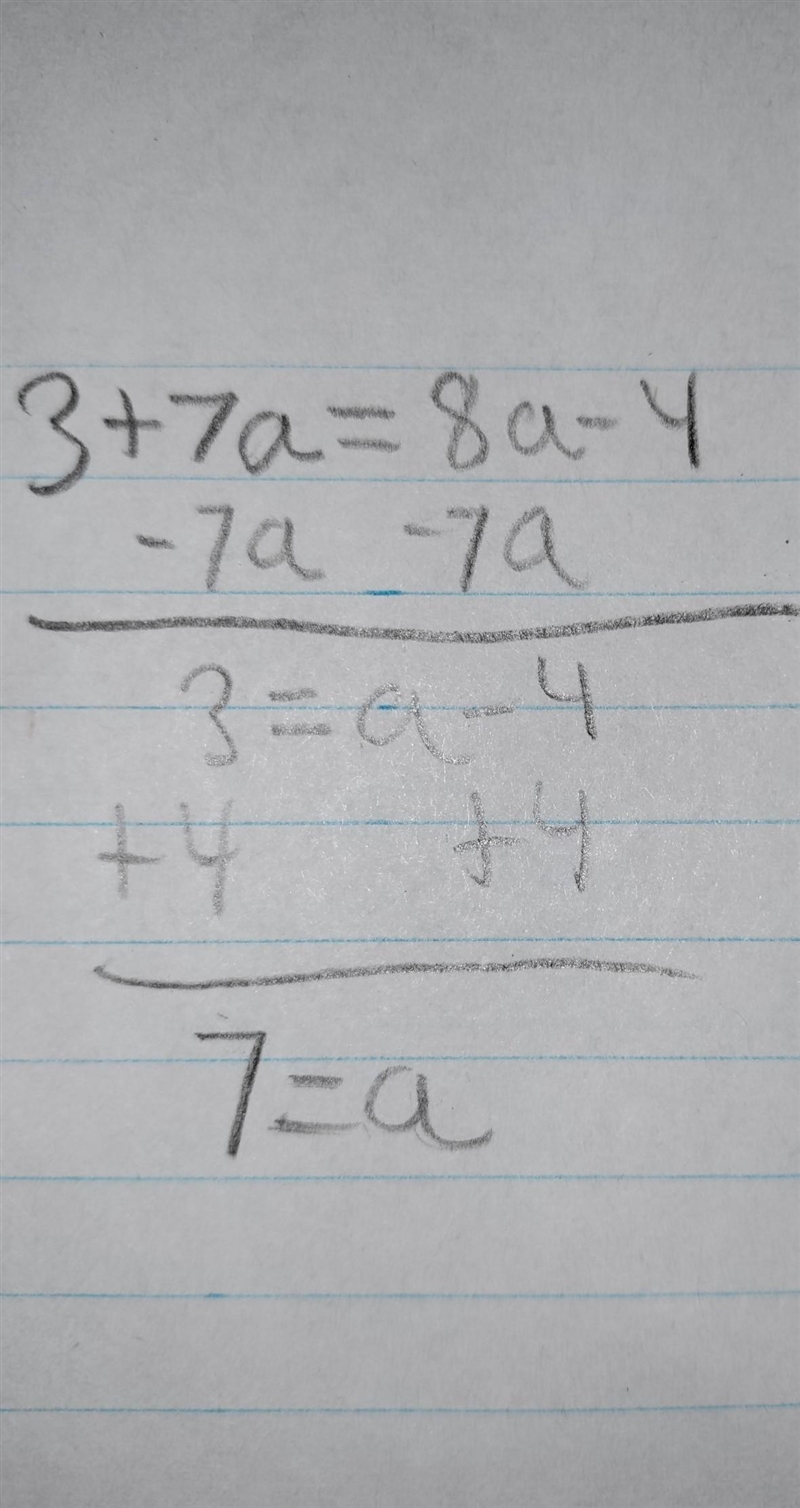 3+7a=8a-4
-7a -7a
3=a-4
+4 +4
7=a